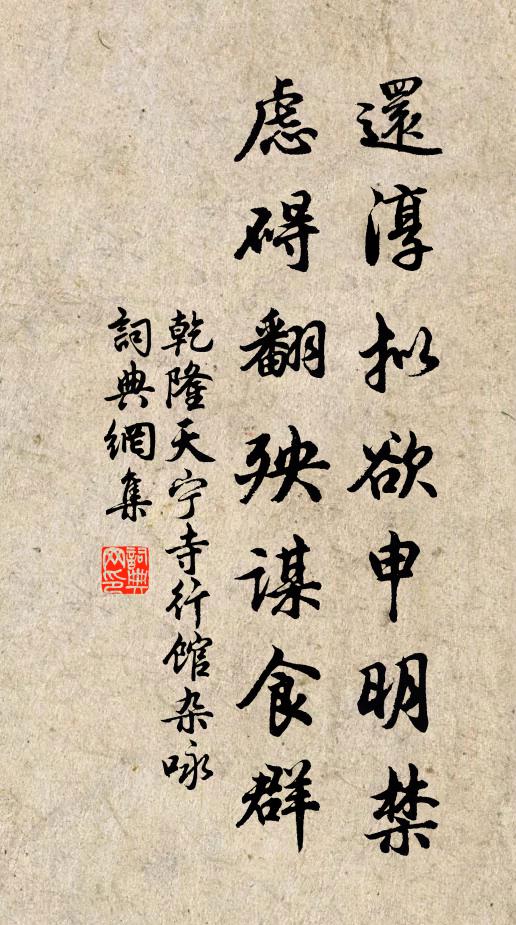 還淳拟欲申明禁
慮碍翻殃谋食群
乾隆天宁寺行馆杂咏
詞典網集
詞典网印